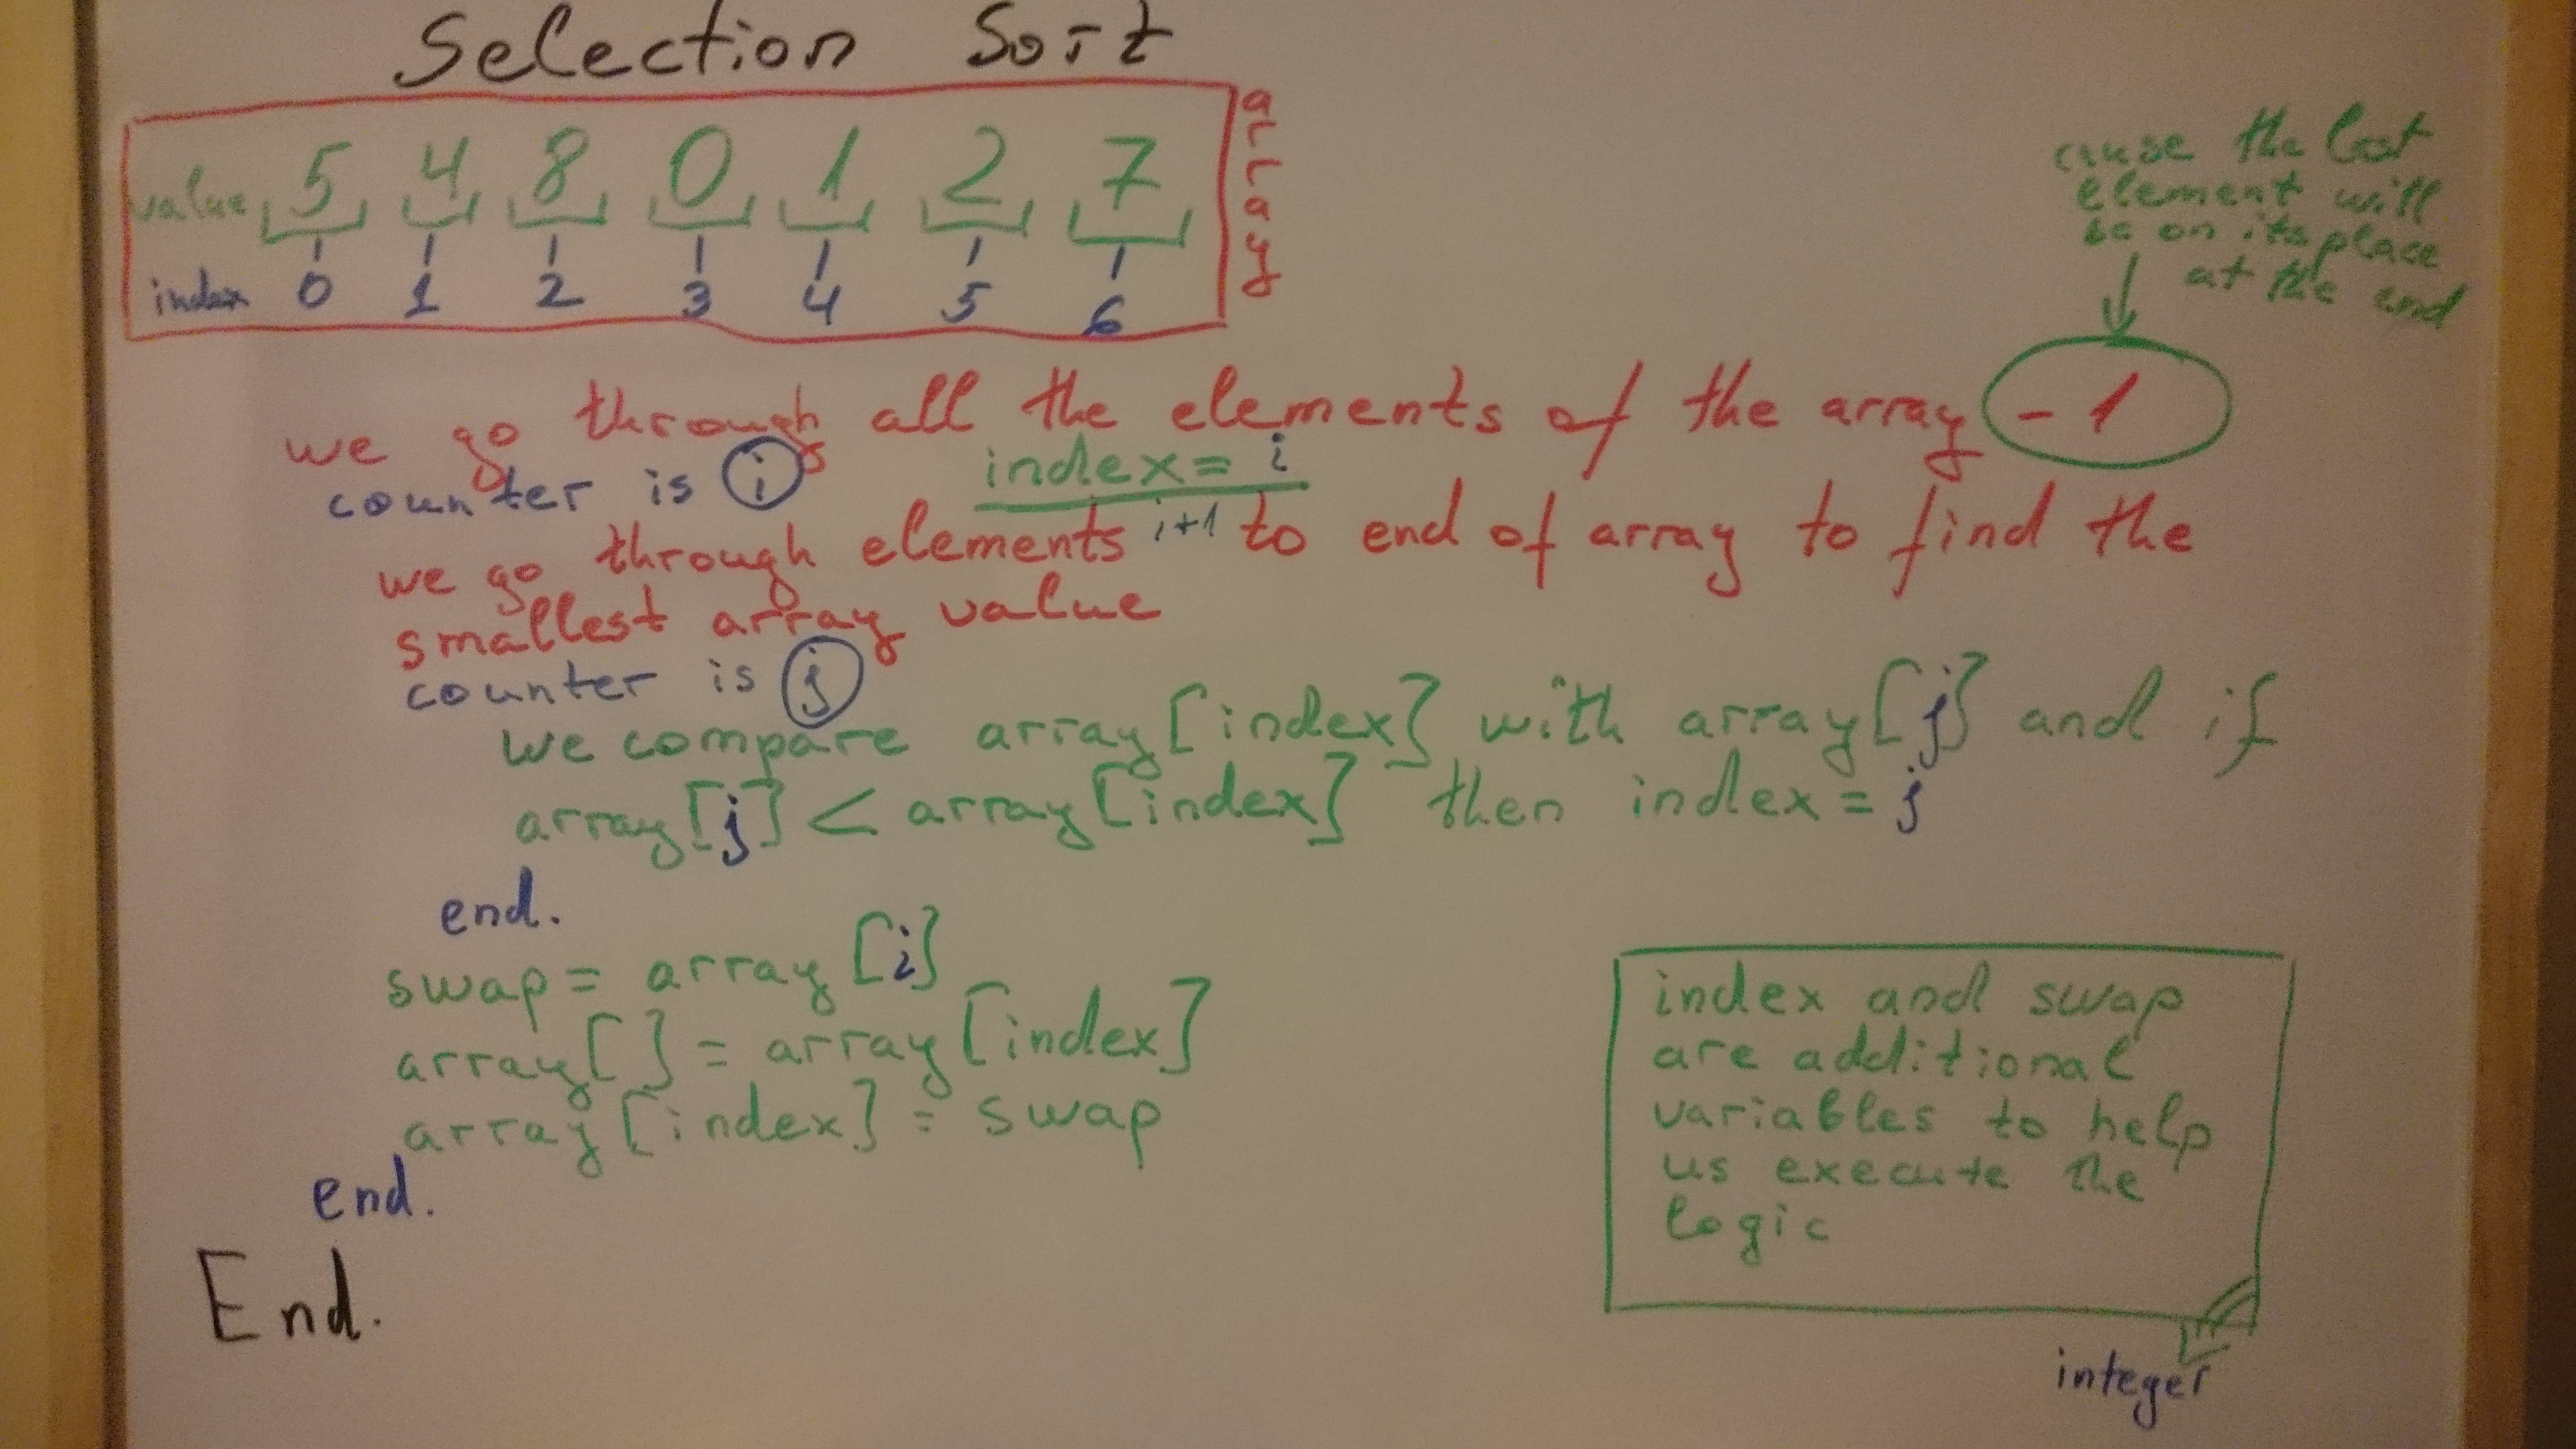 Selection Sort
value 5 4 8 0 1 2 7
index 0 1 2 3 4 5 6
array
cause the last
element will
be on its place
at the end
we go through all the elements of the array - 1
counter is i
index = i
we go through elements i+1 to end of array to find the
smallest array value
counter is j
we compare array[index] with array[j] and if
array[j] < array[index] then index = j
end.
swap = array[i]
array[ ] = array[index]
array[index] = swap
end.
End.
index and swap
are additional
variables to help
us execute the
logic
integer